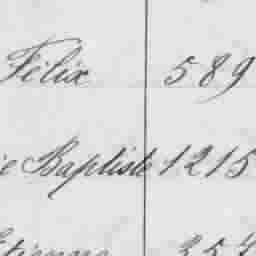 Félix 589
ie Baptiste 1215
Etienne 257